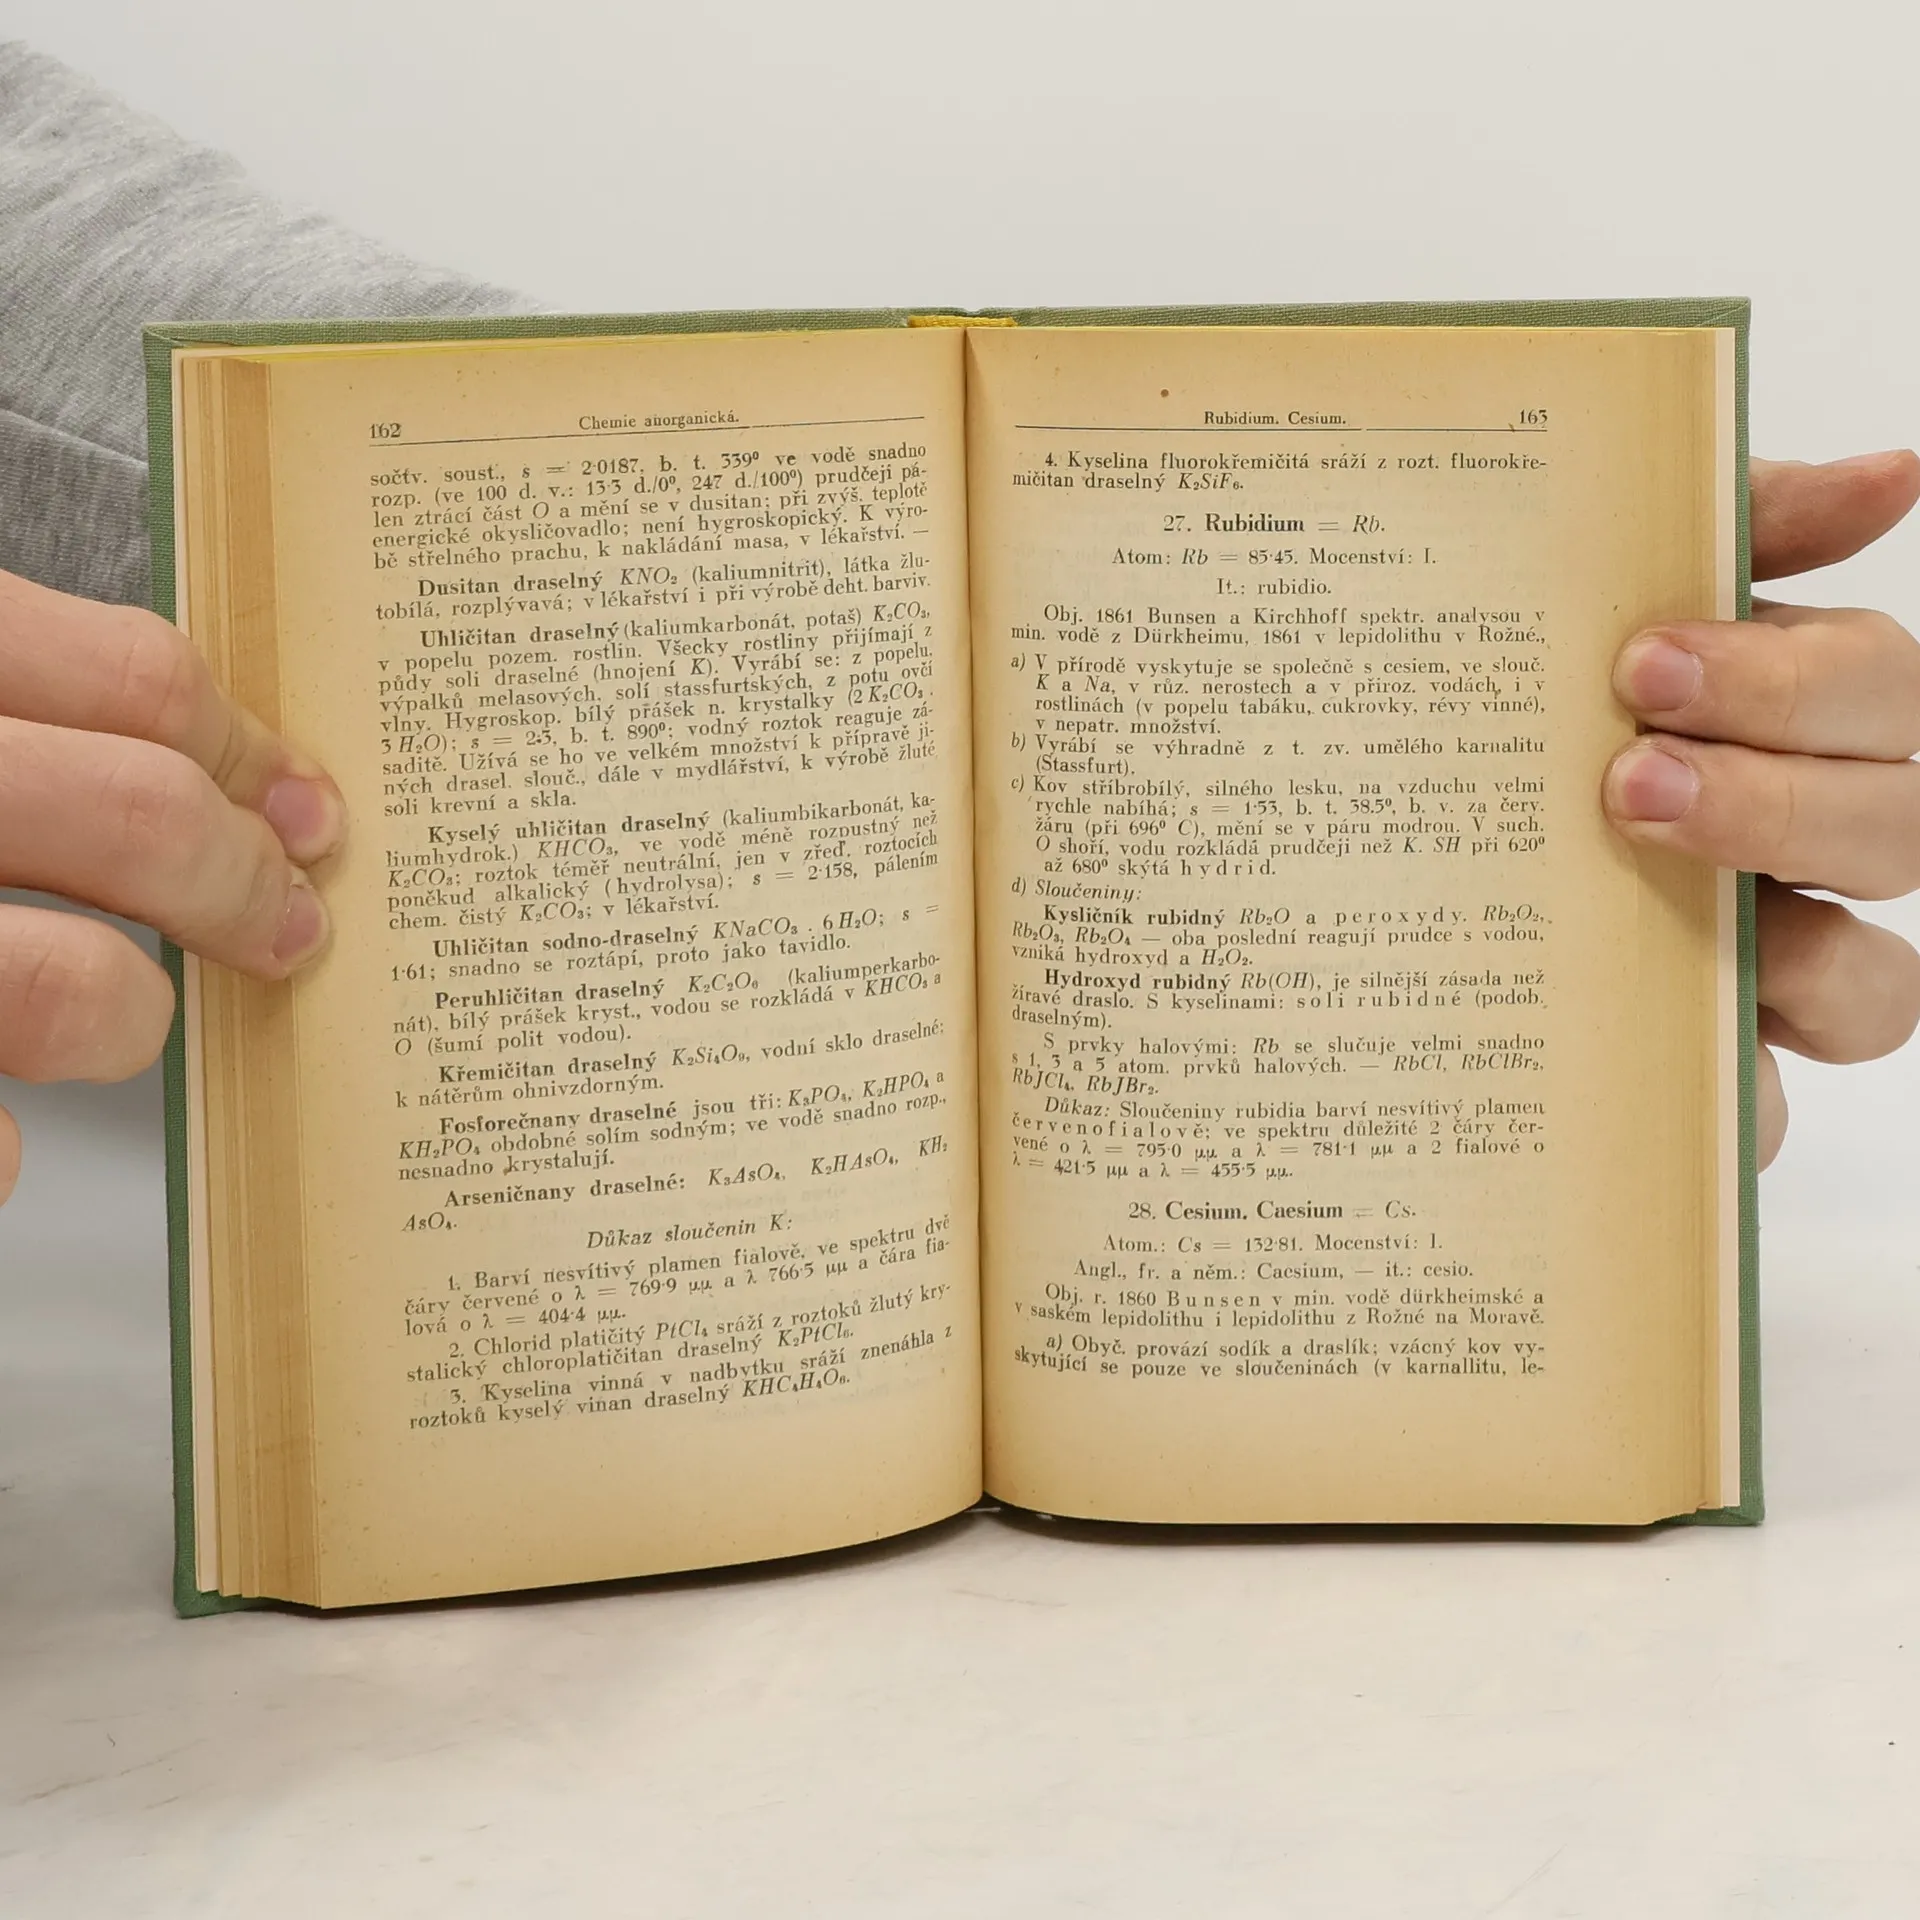 162
Chemie anorganická.
sočtv. soust., s = 2·0187, b. t. 339⁰ ve vodě snadno
rozp. (ve 100 d. v.: 13·3 d./0⁰, 247 d./100⁰) prudčeji pá-
len ztrácí část O a mění se v dusitan; při zvýš. teplotě
energické okysličovadlo; není hygroskopický. K výro-
bě střelného prachu, k nakládání masa, v lékařství. —
Dusitan draselný KNO₂ (kaliumnitrit), látka žlu-
tobílá, rozplývavá; v lékařství i při výrobě deht. barviv.
Uhličitan draselný (kaliumkarbonát, potaš) K₂CO₃,
v popelu pozem. rostlin. Všecky rostliny přijímají z
půdy soli draselné (hnojení K). Vyrábí se: z popelu,
výpalků melasových, solí stassfurtských, z potu ovčí
vlny. Hygroskop. bílý prášek n. krystalky (2 K₂CO₃ .
3 H₂O); s = 2·3, b. t. 890⁰; vodný roztok reaguje zá-
saditě. Užívá se ho ve velkém množství k přípravě ji-
ných drasel. slouč., dále v mydlářství, k výrobě žluté
soli krevní a skla.
Kyselý uhličitan draselný (kaliumbikarbonát, ka-
liumhydrok.) KHCO₃, ve vodě méně rozpustný než
K₂CO₃; roztok téměř neutrální, jen v zřeď. roztocích
poněkud alkalický (hydrolysa); s = 2·158, pálením
chem. čistý K₂CO₃; v lékařství.
Uhličitan sodno-draselný KNaCO₃ . 6 H₂O; s =
1·61; snadno se roztápí, proto jako tavidlo.
Peruhličitan draselný K₂C₂O₆ (kaliumperkarbo-
nát), bílý prášek kryst., vodou se rozkládá v KHCO₃ a
O (šumí polit vodou).
Křemičitan draselný K₂Si₄O₉, vodní sklo draselné;
k nátěrům ohnivzdorným.
Fosforečnany draselné jsou tři: K₃PO₄, K₂HPO₄ a
KH₂PO₄ obdobné solím sodným; ve vodě snadno rozp.,
nesnadno krystalují.
Arseničnany draselné: K₃AsO₄, K₂HAsO₄, KH₂
AsO₄.
Důkaz sloučenin K:
1. Barví nesvítivý plamen fialově, ve spektru dvě
čáry červené o λ = 769·9 μμ a λ 766·5 μμ a čára fia-
lová o λ = 404·4 μμ.
2. Chlorid platičitý PtCl₄ sráží z roztoků žlutý kry-
stalický chloroplatičitan draselný K₂PtCl₆.
3. Kyselina vinná v nadbytku sráží znenáhla z
roztoků kyselý vinan draselný KHC₄H₄O₆.
Rubidium. Cesium.
163
4. Kyselina fluorokřemičitá sráží z rozt. fluorokře-
mičitan draselný K₂SiF₆.
27. Rubidium = Rb.
Atom: Rb = 85·45. Mocenství: I.
It.: rubidio.
Obj. 1861 Bunsen a Kirchhoff spektr. analysou v
min. vodě z Dürkheimu, 1861 v lepidolithu v Rožné.,
a) V přírodě vyskytuje se společně s cesiem, ve slouč.
K a Na, v růz. nerostech a v přiroz. vodách, i v
rostlinách (v popelu tabáku, cukrovky, révy vinné),
v nepatr. množství.
b) Vyrábí se výhradně z t. zv. umělého karnalitu
(Stassfurt).
c) Kov stříbrobílý, silného lesku, na vzduchu velmi
rychle nabíhá; s = 1·53, b. t. 38.5⁰, b. v. za červ.
žáru (při 696⁰ C), mění se v páru modrou. V such.
O shoří, vodu rozkládá prudčeji než K. SH při 620⁰
až 680⁰ skýtá hydrid.
d) Sloučeniny:
Kysličník rubidný Rb₂O a peroxydy. Rb₂O₂,
Rb₂O₃, Rb₂O₄ — oba poslední reagují prudce s vodou,
vzniká hydroxyd a H₂O₂.
Hydroxyd rubidný Rb(OH), je silnější zásada než
žíravé draslo. S kyselinami: soli rubidné (podob.
draselným).
S prvky halovými: Rb se slučuje velmi snadno
s 1, 3 a 5 atom. prvků halových. — RbCl, RbClBr₂,
RbJCl₄, RbJBr₂.
Důkaz: Sloučeniny rubidia barví nesvítivý plamen
červenofialově; ve spektru důležité 2 čáry čer-
vené o λ = 795·0 μμ a λ = 781·1 μμ a 2 fialové o
λ = 421·5 μμ a λ = 455·5 μμ.
28. Cesium. Caesium = Cs.
Atom.: Cs = 132·81. Mocenství: I.
Angl., fr. a něm.: Caesium, — it.: cesio.
Obj. r. 1860 Bunsen v min. vodě dürkheimské a
v saském lepidolithu i lepidolithu z Rožné na Moravě.
a) Obyč. provází sodík a draslík; vzácný kov vy-
skytující se pouze ve sloučeninách (v karnallitu, le-